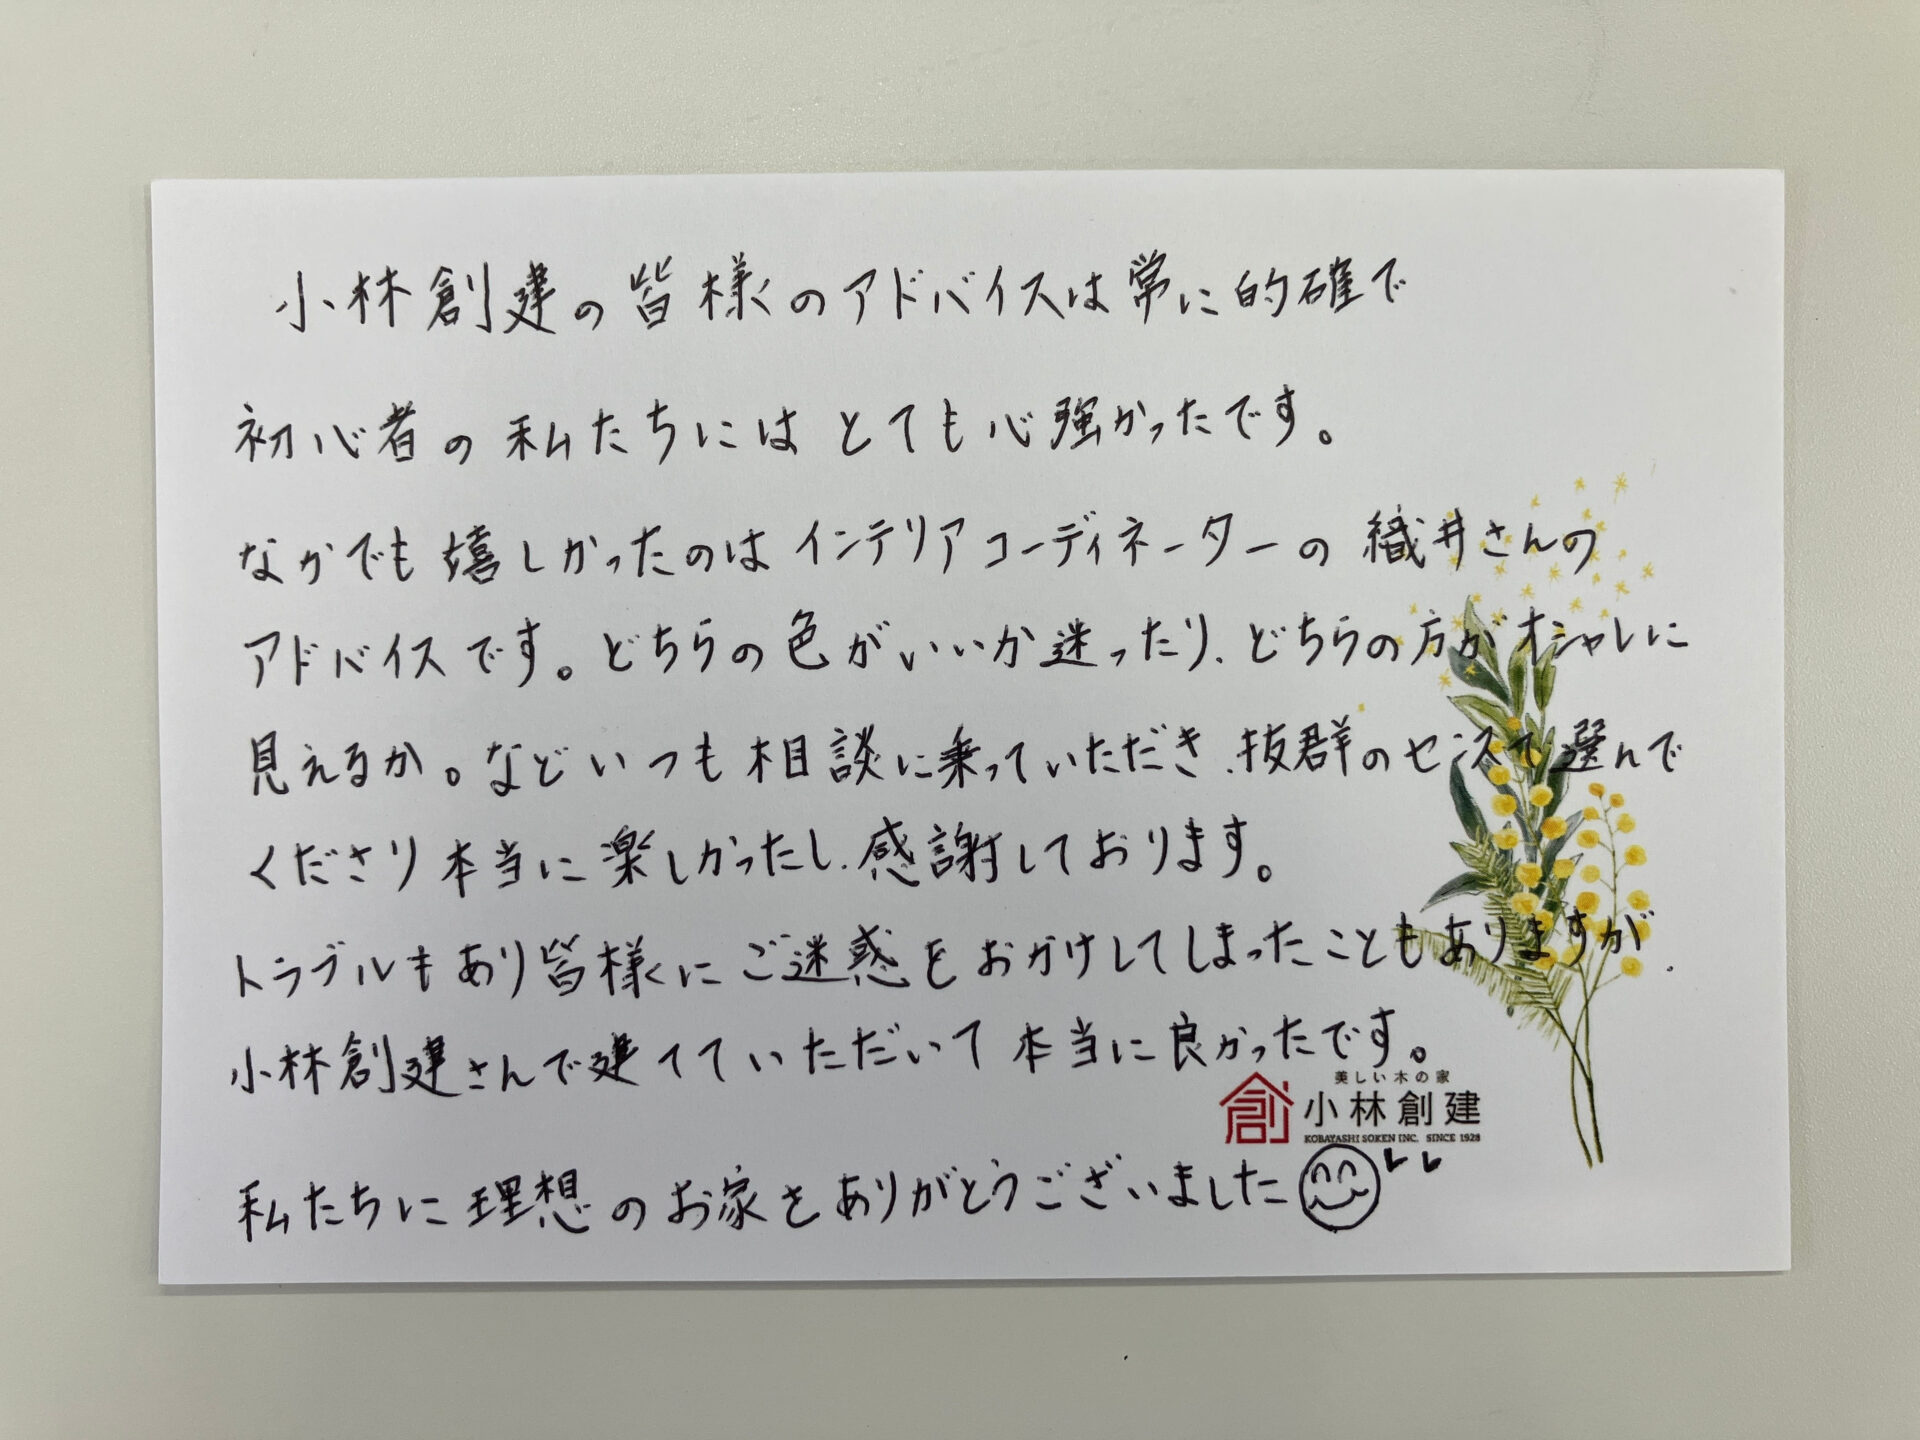 小林創建の皆様のアドバイスは常に的確で
初心者の私たちにはとても心強かったです。
なかでも嬉しかったのはインテリアコーディネーターの織井さんの
アドバイスです。どちらの色がいいか迷ったり、どちらの方がオシャレに
見えるか。などいつも相談に乗っていただき、抜群のセンスで選んで
くださり本当に楽しかったし、感謝しております。
トラブルもあり皆様にご迷惑をおかけしてしまったこともありますが、
小林創建さんで建てていただいて本当に良かったです。
美しい木の家
創 小林創建
KOBAYASHI SOKEN INC. SINCE 1928
私たちに理想のお家をありがとうございました